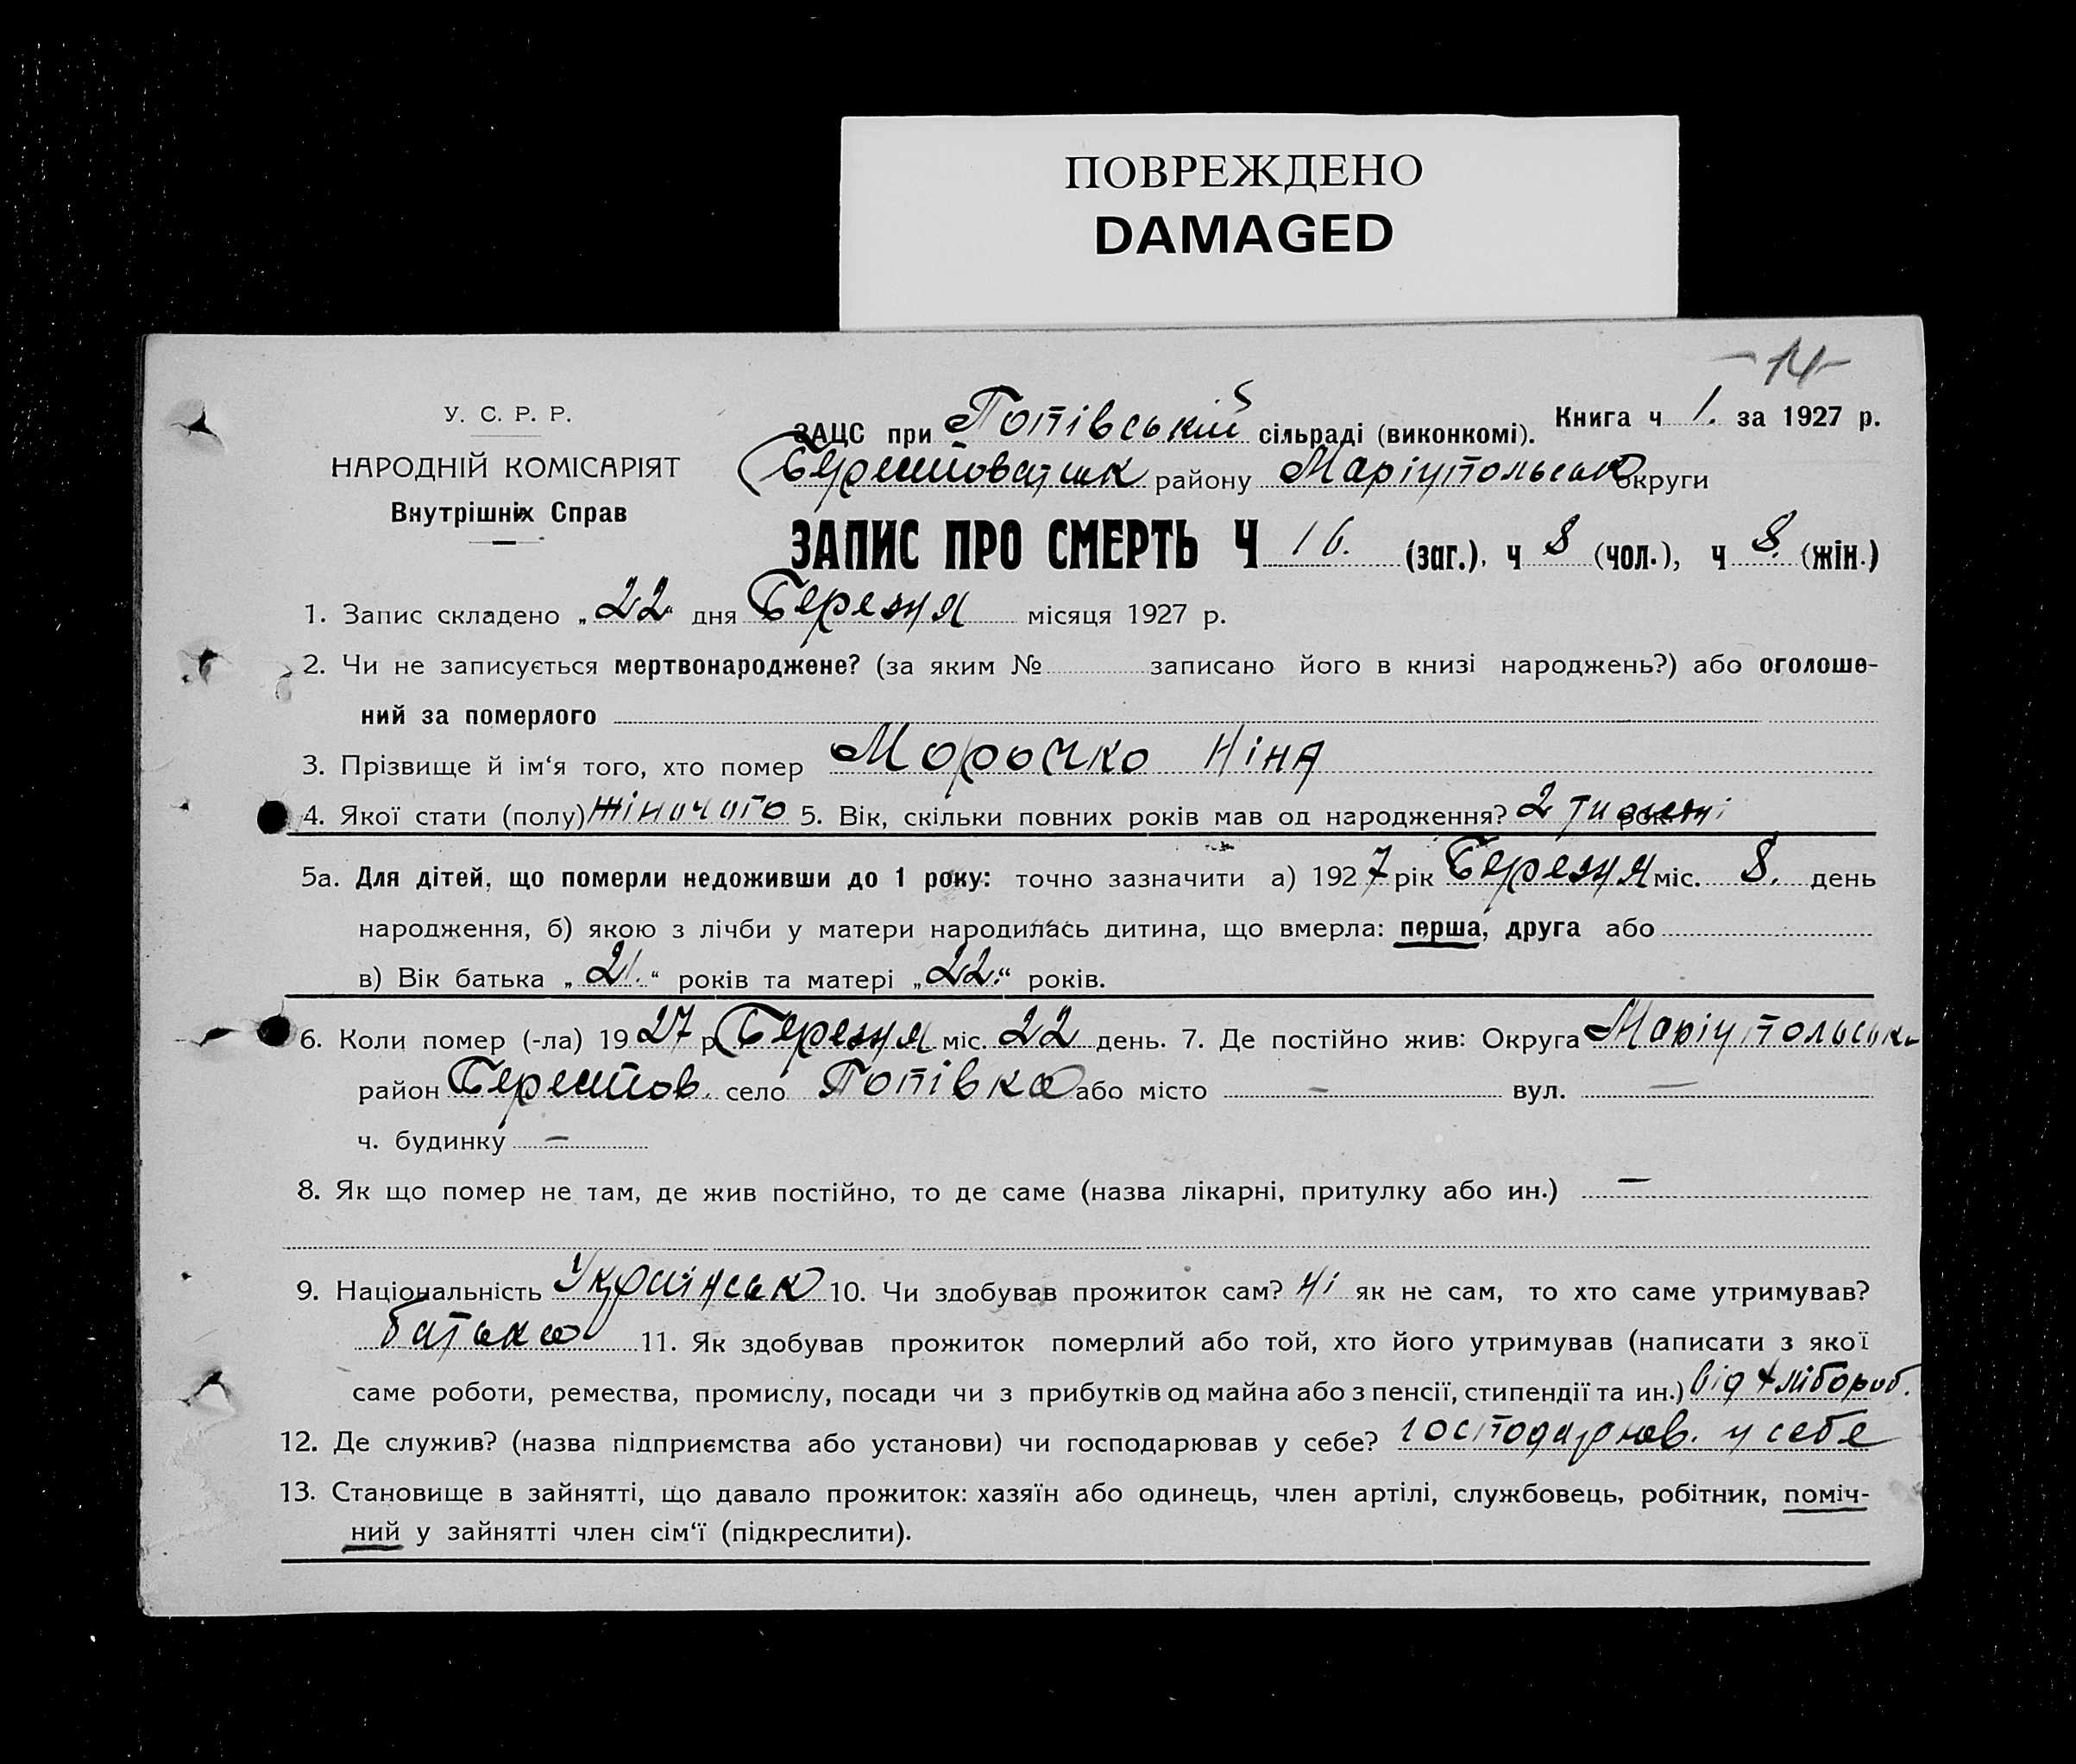 ПОВРЕЖДЕНО
DAMAGED
-14-
У. С. Р. Р.
НАРОДНІЙ КОМІСАРІЯТ
Внутрішніх Справ
ЗАЦС при Попівській сільраді (виконкомі). Книга ч 1. за 1927 р.
району Маріупольськ округи
ЗАПИС ПРО СМЕРТЬ Ч 16. (заг.), ч 8 (чол.), ч 8. (жін.)
1. Запис складено „22“ дня Березня місяця 1927 р.
2. Чи не записується мертвонароджене? (за яким № записано його в книзі народжень?) або оголоше-
ний за померлого
3. Прізвище й ім‘я того, хто помер Морочко Ніна
4. Якої стати (полу) жіночого 5. Вік, скільки повних років мав од народження? 2 тижні рок.
5а. Для дітей, що померли недоживши до 1 року: точно зазначити а) 1927 рік Березня міс. 8. день
народження, б) якою з лічби у матери народилась дитина, що вмерла: перша, друга або
в) Вік батька „21.“ років та матері „22.“ років.
6. Коли помер (-ла) 1927 р. Березня міс. 22 день. 7. Де постійно жив: Округа Маріупольська
район Берестов. село Попівка або місто - вул. —
ч. будинку —
8. Як що помер не там, де жив постійно, то де саме (назва лікарні, притулку або ин.) —
9. Національність Українськ 10. Чи здобував прожиток сам? Ні як не сам, то хто саме утримував?
батько 11. Як здобував прожиток померлий або той, хто його утримував (написати з якої
саме роботи, ремества, промислу, посади чи з прибутків од майна або з пенсії, стипендії та ин.) від хлібороб.
12. Де служив? (назва підприємства або установи) чи господарював у себе? господарюв. у себе
13. Становище в зайнятті, що давало прожиток: хазяїн або одинець, член артілі, службовець, робітник, поміч-
ний у зайнятті член сім‘ї (підкреслити).